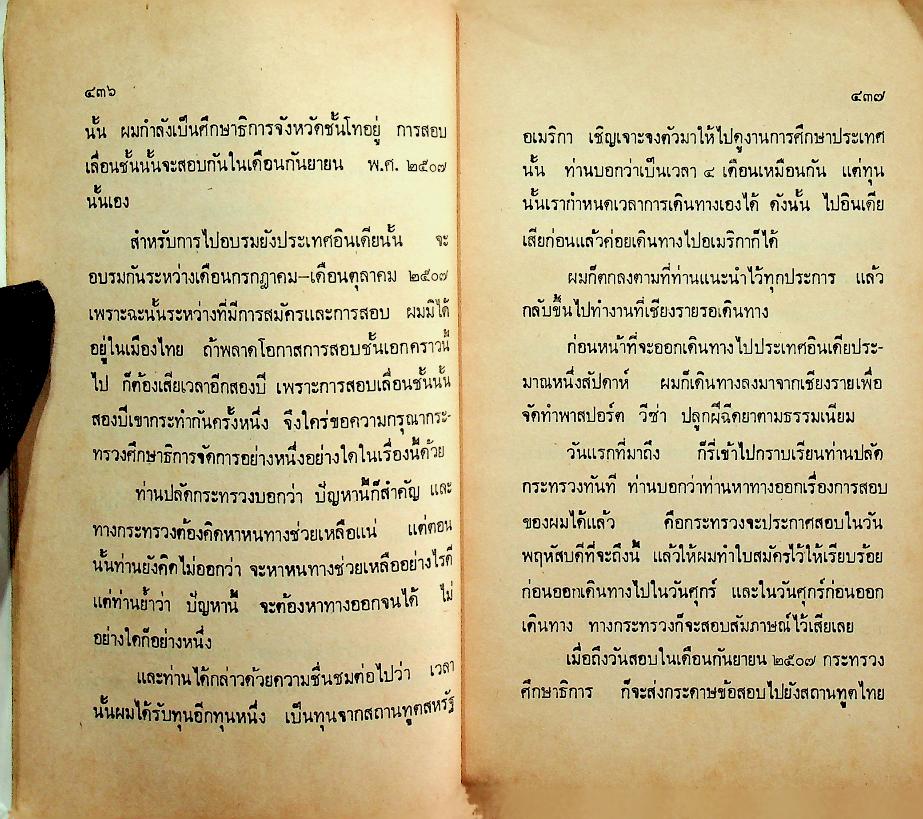 ๔๓๖
นั้น ผมกำลังเป็นศึกษาธิการจังหวัดชั้นโทอยู่ การสอบ
เลื่อนชั้นนั้นจะสอบกันในเดือนกันยายน พ.ศ. ๒๕๐๗
นั้นเอง
สำหรับการไปอบรมยังประเทศอินเดียนั้น จะ
อบรมกันระหว่างเดือนกรกฎาคม–เดือนตุลาคม ๒๕๐๗
เพราะฉะนั้นระหว่างที่มีการสมัครและการสอบ ผมมิได้
อยู่ในเมืองไทย ถ้าพลาดโอกาสการสอบชั้นเอกคราวนี้
ไป ก็ต้องเสียเวลาอีกสองปี เพราะการสอบเลื่อนชั้นนั้น
สองปีเขากระทำกันครั้งหนึ่ง จึงใคร่ขอความกรุณากระ-
ทรวงศึกษาธิการจัดการอย่างหนึ่งอย่างใดในเรื่องนี้ด้วย
ท่านปลัดกระทรวงบอกว่า ปัญหานี้ก็สำคัญ และ
ทางกระทรวงต้องคิดหาหนทางช่วยเหลือแน่ แต่ตอน
นั้นท่านยังคิดไม่ออกว่า จะหาหนทางช่วยเหลืออย่างไรดี
แต่ท่านย้ำว่า ปัญหานี้ จะต้องหาทางออกจนได้ ไม่
อย่างใดก็อย่างหนึ่ง
และท่านได้กล่าวด้วยความชื่นชมต่อไปว่า เวลา
นั้นผมได้รับทุนอีกทุนหนึ่ง เป็นทุนจากสถานทูตสหรัฐ
๔๓๗
อเมริกา เชิญเจาะจงตัวมาให้ไปดูงานการศึกษาประเทศ
นั้น ท่านบอกว่าเป็นเวลา ๔ เดือนเหมือนกัน แต่ทุน
นั้นเรากำหนดเวลาการเดินทางเองได้ ดังนั้น ไปอินเดีย
เสียก่อนแล้วค่อยเดินทางไปอเมริกาก็ได้
ผมก็ตกลงตามที่ท่านแนะนำไว้ทุกประการ แล้ว
กลับขึ้นไปทำงานที่เชียงรายรอเดินทาง
ก่อนหน้าที่จะออกเดินทางไปประเทศอินเดียประ-
มาณหนึ่งสัปดาห์ ผมก็เดินทางลงมาจากเชียงรายเพื่อ
จัดทำพาสปอร์ต วีซ่า ปลูกฝีฉีดยาตามธรรมเนียม
วันแรกที่มาถึง ก็รี่เข้าไปกราบเรียนท่านปลัด
กระทรวงทันที ท่านบอกว่าท่านหาทางออกเรื่องการสอบ
ของผมได้แล้ว คือกระทรวงจะประกาศสอบในวัน
พฤหัสบดีที่จะถึงนี้ แล้วให้ผมทำใบสมัครไว้ให้เรียบร้อย
ก่อนออกเดินทางไปในวันศุกร์ และในวันศุกร์ก่อนออก
เดินทาง ทางกระทรวงก็จะสอบสัมภาษณ์ไว้เสียเลย
เมื่อถึงวันสอบในเดือนกันยายน ๒๕๐๗ กระทรวง
ศึกษาธิการ ก็จะส่งกระดาษข้อสอบไปยังสถานทูตไทย